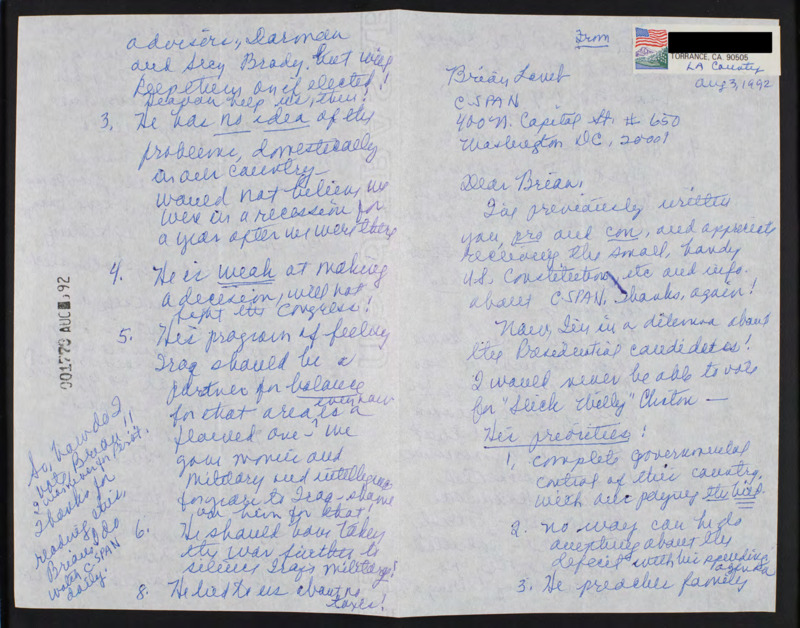 From
TORRANCE, CA. 90505
LA County
Aug 3, 1992
Brian Lamb
C SPAN
400 N. Capitol St. # 650
Washington DC, 20001
Dear Brian,
I've previously written
you, pro and con, and appreciate
receiving the small, handy
U.S. Constitution, etc and info.
about CSPAN, Thanks, again!
Now, I'm in a dilemma about
the Presidential candidates!
I would never be able to vote
for "Slick Willy" Clinton —
His priorities!
1. complete governmental
control of this country,
with our paying the bill.
2. no way can he do
anything about the
deficit with his spending
agenda
3. He preaches family
advisers, Darman
and Secy Brady, but will
keep them on if elected!
help us, then!
3. He has no idea of the
problems, domestically
in our country —
would not believe we
were in a recession for
a year after we were there
4. He is weak at making
a decision, will not
fight the Congress!
5. His program of feeling
Iraq should be a
partner for balance
for that area is a
even now
flawed one – we
gave monies and
military and intelligence
to Iraq – shame
on him for that!
6. He should have taken
the war further to
silence Iraq's military!
8. He lied to us about no
taxes!
001770 AUG 92
So, how do I
vote, Brian!!
Thanks for
reading this,
Brian, I do
watch C SPAN
daily.